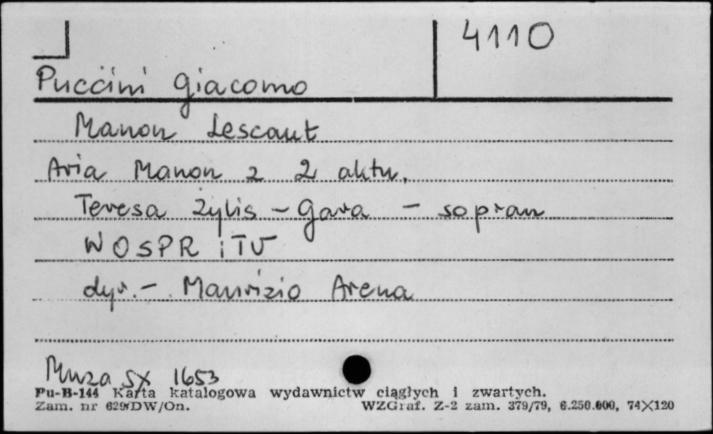 4110
Puccini Giacomo
Manon Lescaut
Aria Manon z 2 aktu.
Teresa Żylis - Gara - sopran
WOSPR i TV
dyr. - Maurizio Arena
Muza SX 1653
Pu-B-144 Karta katalogowa wydawnictw ciągłych i zwartych.
Zam. nr 629/DW/On. WZGraf. Z-2 zam. 379/79, 6.250.000, 74X120